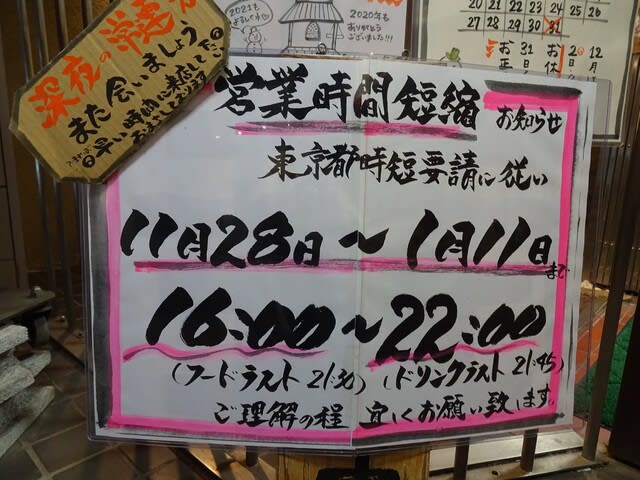 2021も
よろしくね
2020年も
ありがとう
ございました!!!
20 21 22 23 24 25 26
27 28 29 30 31
深夜の常連
また会いましょう
早い時間に来店した
営業時間短縮 お知らせ
東京都時短要請に従い
11月28日～1月11日まで
16:00～22:00
(フードラスト 21:30) (ドリンクラスト 21:45)
ご理解の程 宜しくお願い致します。